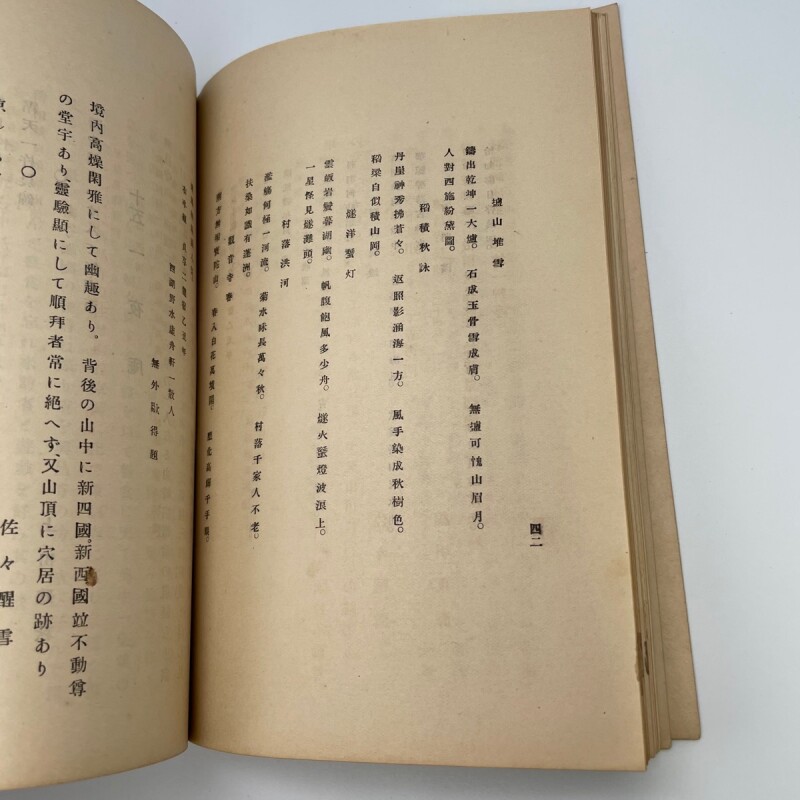 爐山堆雪
鑄出乾坤一大爐。石成玉骨雪成膚。無爐可愧山眉月。
人對西施紛黛圖。
稻積秋詠
丹崖神秀拂蒼々。返照影涵海一方。風手染成秋樹色。
稻梁自似積山岡。
燧洋蜑灯
雲岐岩蠻暮湖幽。帆腹飽風多少舟。燧火蜑燈波浪上。
一星怪見燧灘頭。
村落洪河
何極一河流。菊水球長萬々秋。村落千家人不老。
扶桑如說有蓬洲。
觀音寺春
春入白花萬
西湖野水虛舟軒一散人
無外歐得題
境內高燥閑雅にして幽趣あり。背後の山中に新四國。新西國竝不動尊
の堂宇あり、靈驗顯にして順拜者常に絕へず、又山頂に穴居の跡あり
〇
佐々醒雪
四二